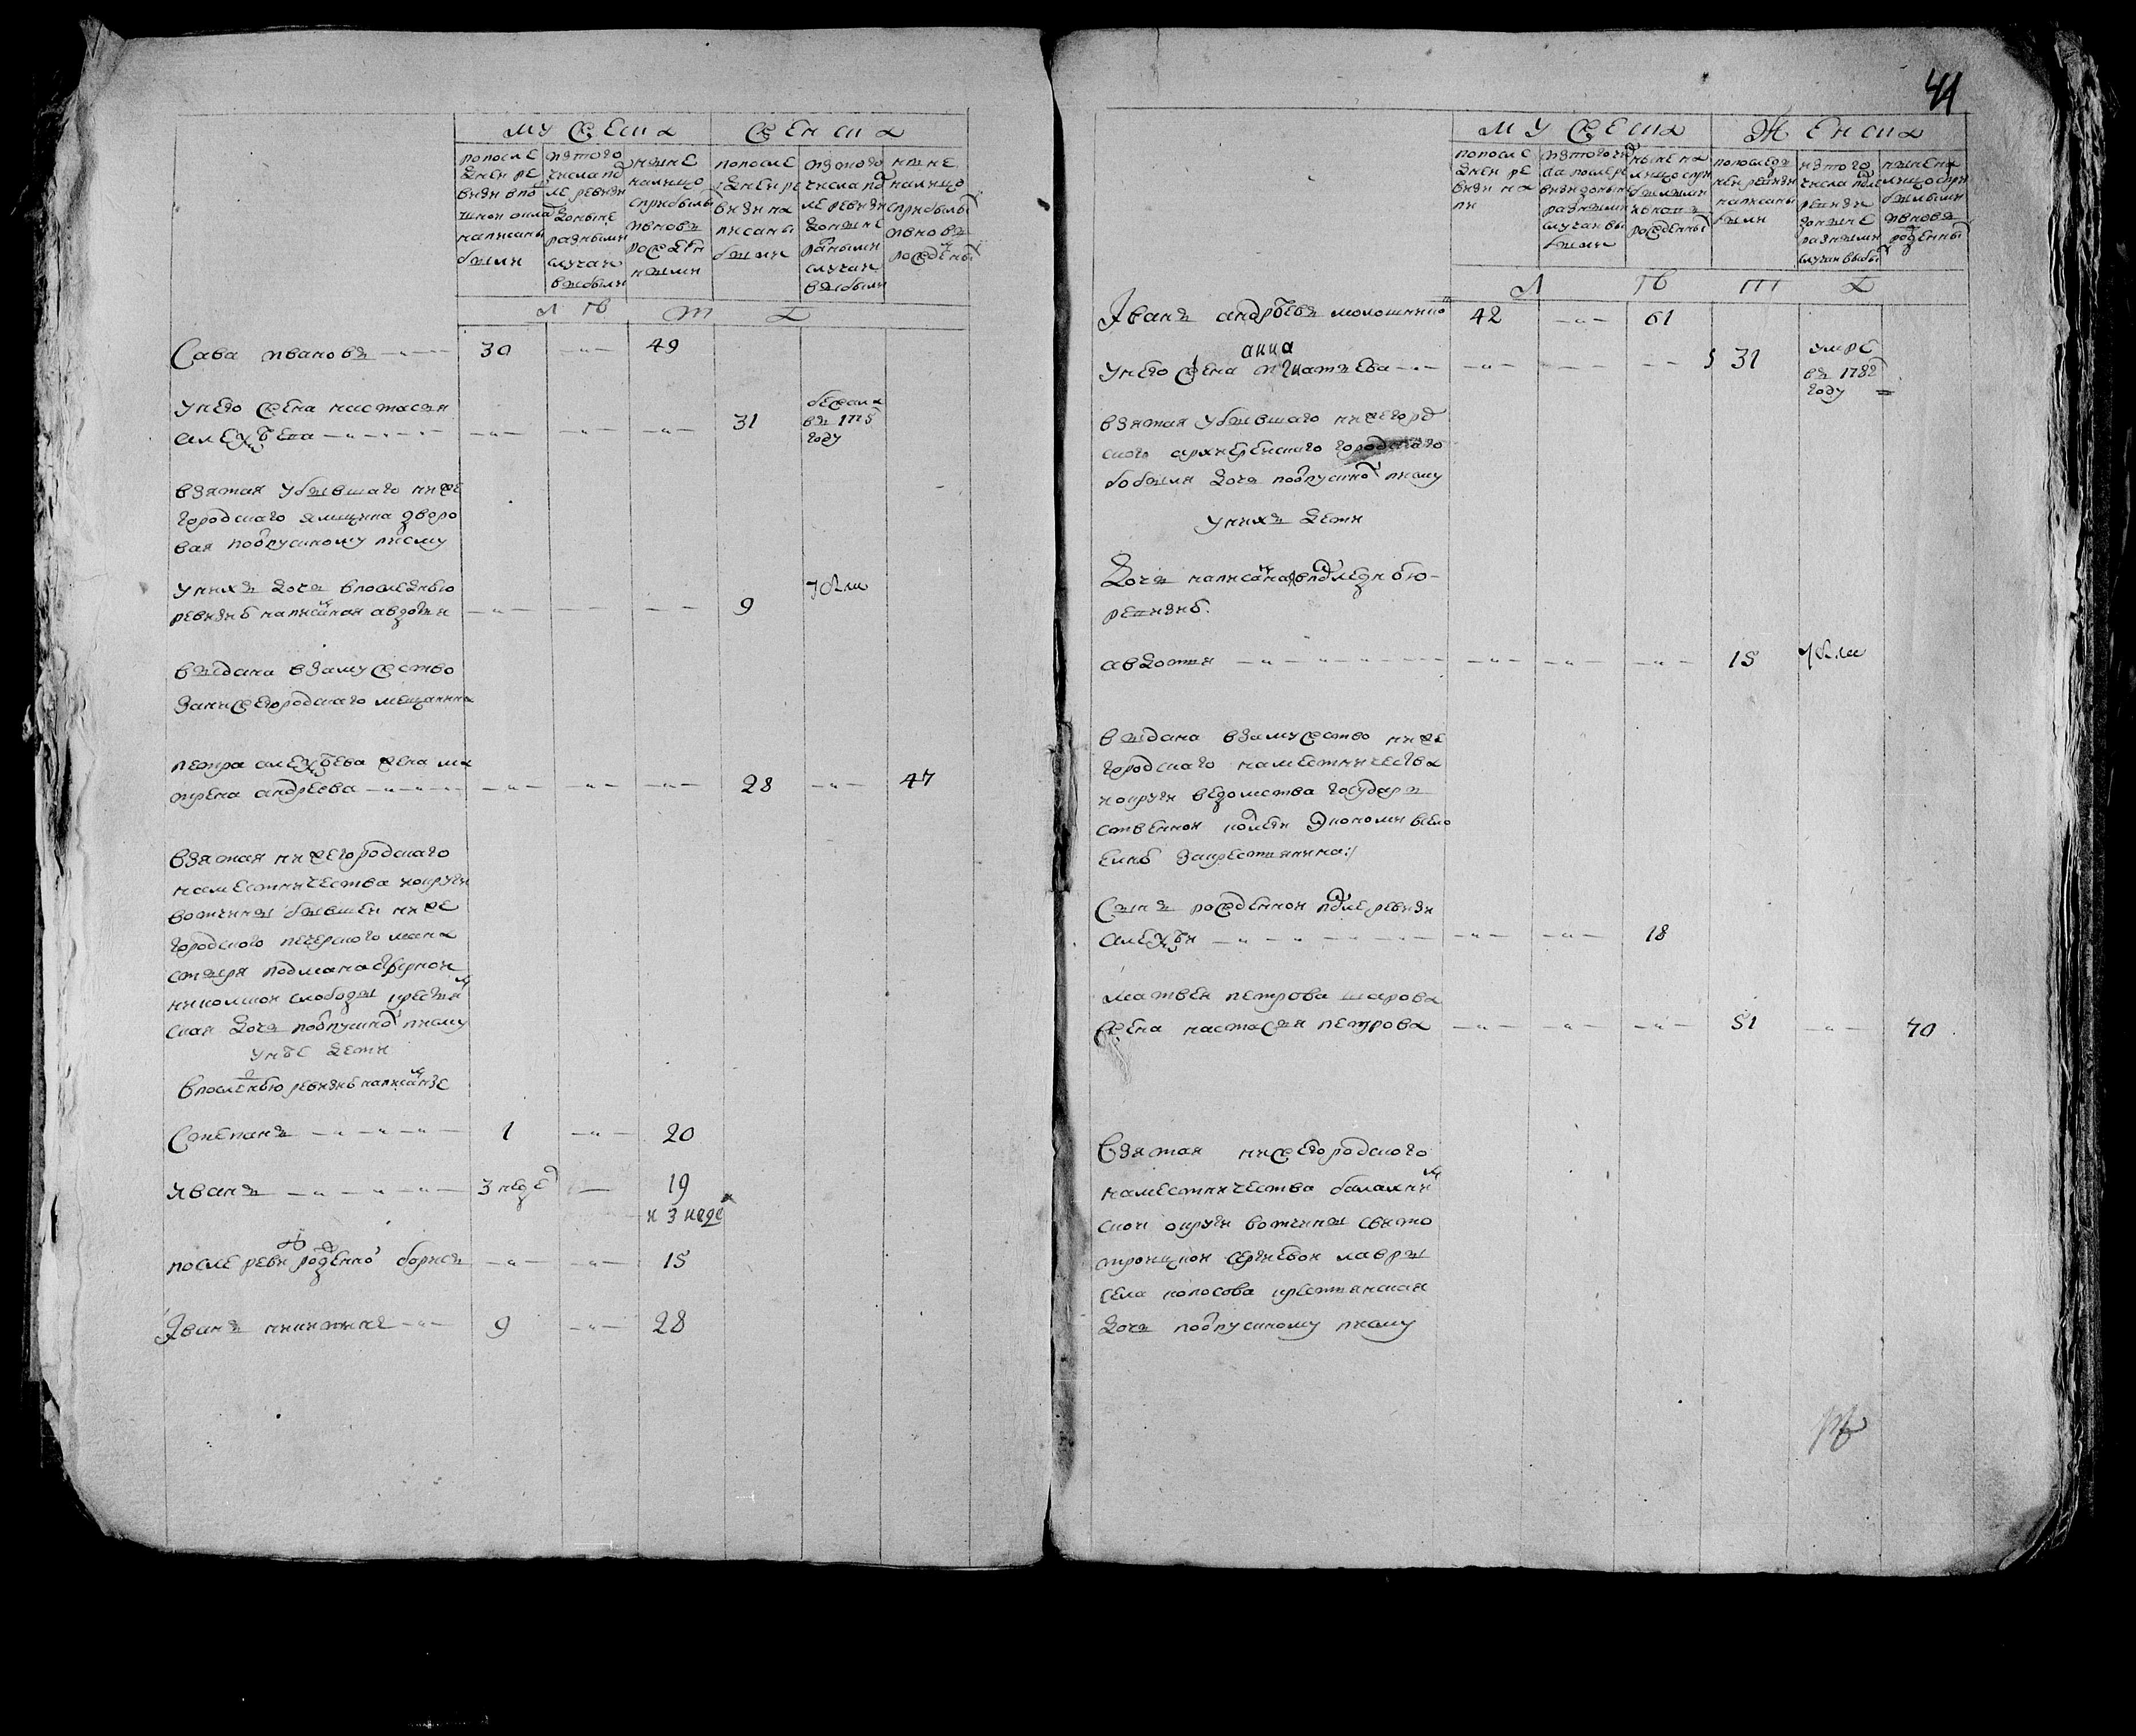 мужеска женска
попосле дней ре визии впо душной оклад написаны были
ис того числа по сле ревизии до ныне разными случаи выбыли
ныне налицо сприбылы ивновь рожден ными
попосле дней ре визии на писаны были
ис того числа по сле ревизии доныне разными случаи выбыли
ныне налицо сприбылы ивновь рожденны
л ѣ т а
Сава иванов 30 49
унего жена настасья
алеѯѣева 31 бежала въ 1775 году
взятая убывшаго ниже
городскаго ямщика дваро
вая поотпускному писму
унихъ дочь впоследнею
ревизиѣ написаная авдотья 9
выдана взамужство
занижегородскаго мещанина
петра алеѯѣева жена ма
трена андреева 28 47
взятая нижегородскаго
наместничества иокруги
вотчины бывшей ниже
городского печерского мана
стыря подманастырной
никольской слободы крестья
ская дочь поотпускно писму
унѣе дети
впоследнею ревизиѣ написаные
Степанъ 1 20
иванъ 3 неде 19
и 3 неде
после реви рожденной борисъ 15
Іванъ никитинъ 9 28
41
мужеска Женска
попосле дней ре визии на пи
ис того чи сла после ре визии доныне разными случаи вы были
ныне на лицо спри былыми ивновь рожденны
попоследн ней ревизии написаны были
ис того числа после ревизи доныне разными случаи выбы
ныне на лицо спри былыми ивновь рожденны
л ѣ т а
Іванъ андрѣевъ молошнико 42 61
анна
унего жена игнатьева 31 умре въ 1782 году
взятая убывшаго нижегород
ского архиерейскаго городскаго
бобыля дочь поотпускно писму
унихъ дети
дочь написаная впоследнею
ревизиѣ
авдотья 15
выдана взамужство ниже
городскаго наместничества
иокруги ведомства государ
ственной колегии экономи всело
елнѣ закрестьянина
Сынъ рожденной после ревизии
алеѯѣй 18
матвея петрова шарова
жена настасья петрова 51 70
Взятая нижегородского
наместничества балахнин
ской округи вотчины свято
троицкой сергиевой лавры
села копосова крестьянская
дочь поотпускному писму